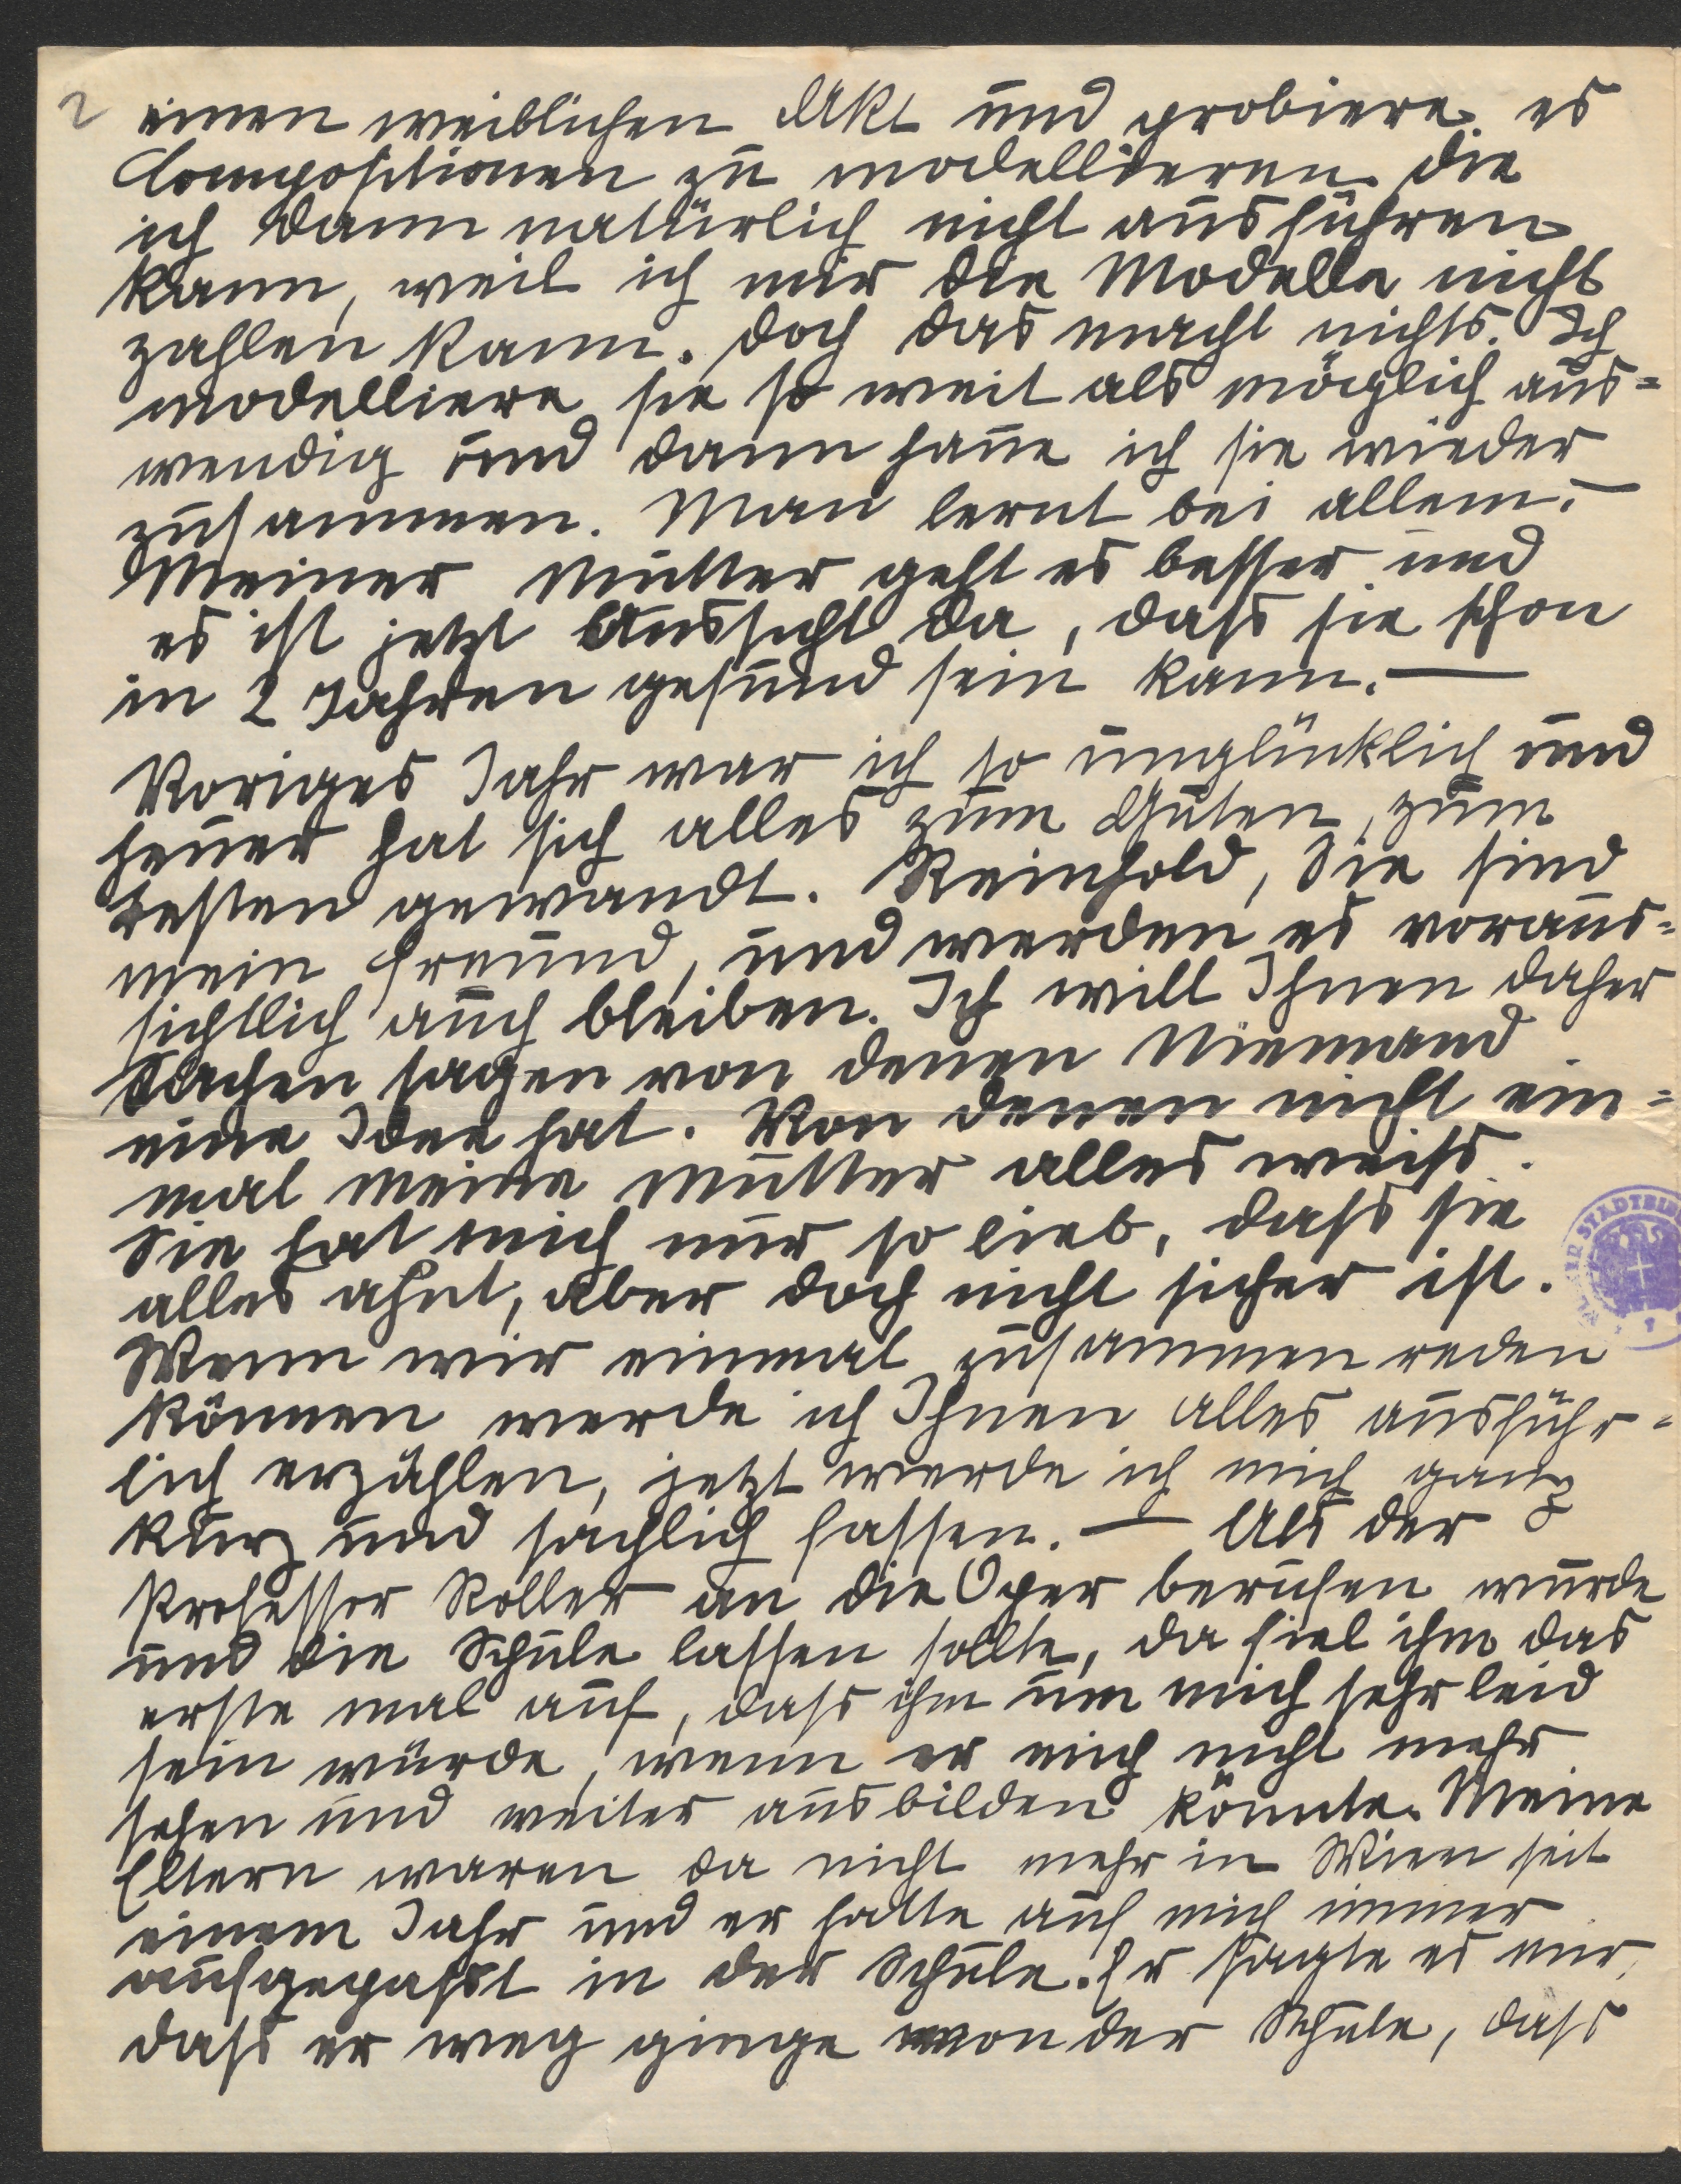 2 einen weiblichen Akt und probiere es
Compositionen zu modellieren die
ich dann natürlich nicht ausführen
kann, weil ich mir die Modelle nicht
zahlen kann. Doch das macht nichts. Ich
modelliere sie so weit als möglich aus=
wendig und dann haue ich sie wieder
zusammen. Man lernt bei allem. –
Meiner Mutter geht es besser und
es ist jetzt Aussicht da, dass sie schon
in 2 Jahren gesund sein kann. —
Voriges Jahr war ich so unglücklich und
heuer hat sich alles zum Guten, zum
besten gewandt. Reinhold, Sie sind
mein Freund, und werden es voraus=
sichtlich auch bleiben. Ich will Ihnen daher
Sachen sagen von denen Niemand
eine Idee hat. Von denen nicht ein=
mal meine Mutter alles weiss.
Sie hat mich nur so lieb, dass sie
alles ahnt, aber doch nicht sicher ist.
Wenn wir einmal zusammen reden
können werde ich Ihnen alles ausführ=
lich erzählen, jetzt werde ich mich ganz
kurz und sachlich fassen. — Als der
Professor Roller an die Oper berufen wurde
und die Schule lassen sollte, da fiel ihm das
erste mal auf, dass ihm um mich sehr leid
sein würde, wenn er mich nicht mehr
sehen und weiter ausbilden könnte. Meine
Eltern waren da nicht mehr in Wien seit
einem Jahr und er hatte auf mich immer
aufgepasst in der Schule. Er sagte es mir,
dass er weg ginge von der Schule, dass